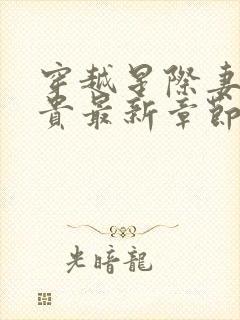 穿越星際妻
貴最新章節
光暗龍